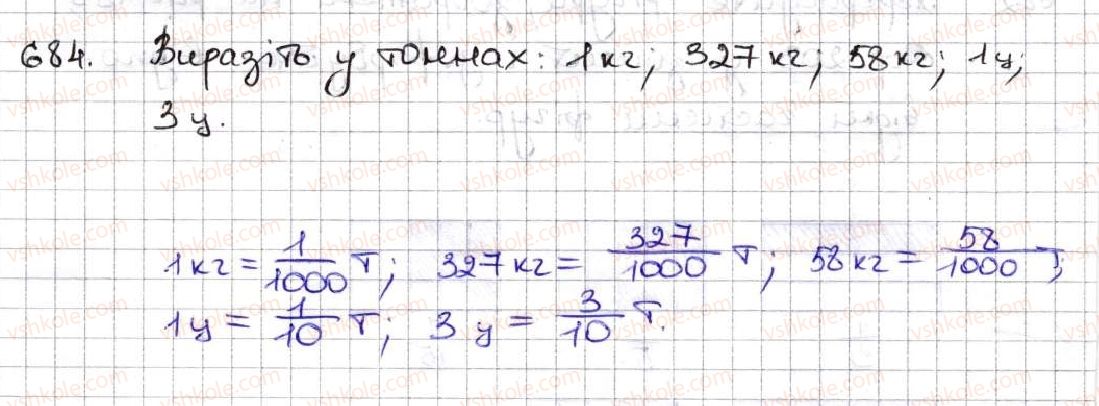 684. Виразіть у тоннах: 1 кг; 327 кг; 58 кг; 1 ц;
3 ц.
1 кг = 1/1000 т; 327 кг = 327/1000 т; 58 кг = 58/1000 т;
1 ц = 1/10 т; 3 ц = 3/10 т.